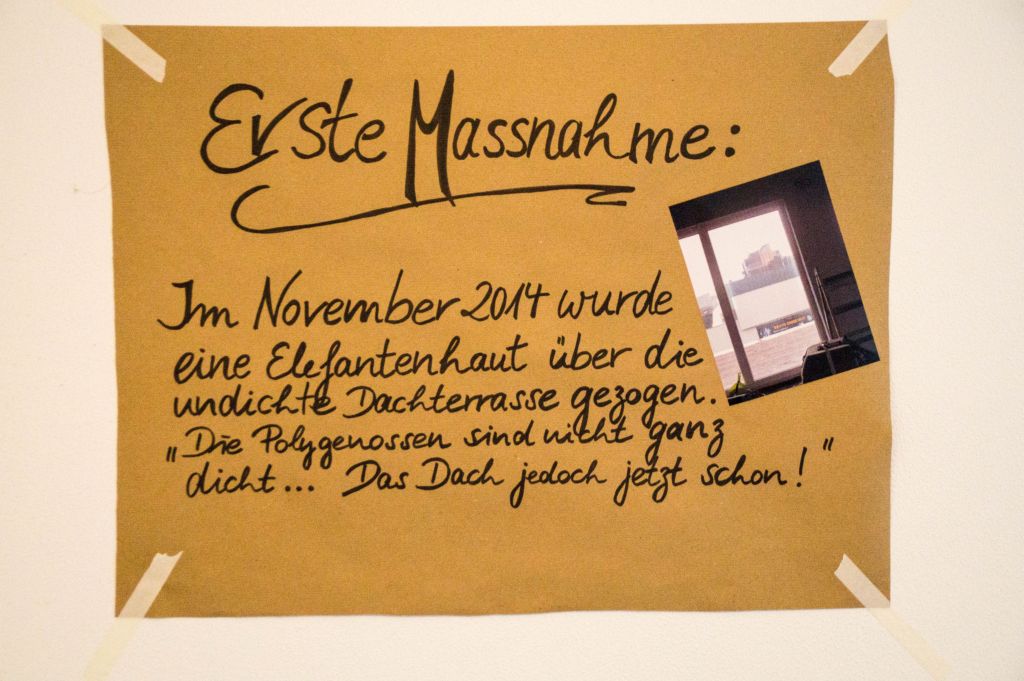 Erste Massnahme:
Im November 2014 wurde
eine Elefantenhaut über die
undichte Dachterrasse gezogen.
„Die Polygenossen sind nicht ganz
dicht... Das Dach jedoch jetzt schon!"